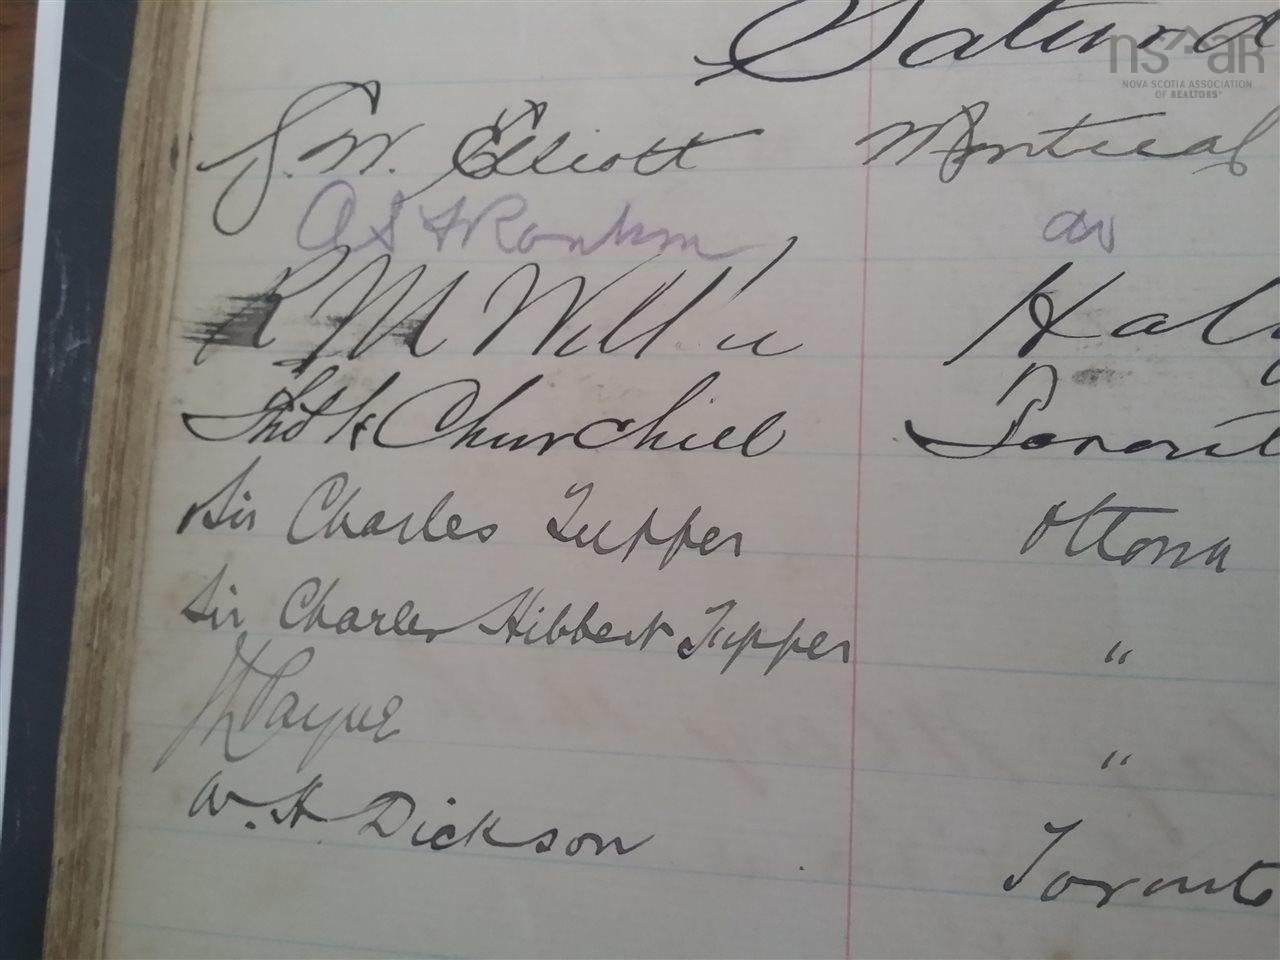 Saturd
nsar
NOVA SCOTIA ASSOCIATION
OF REALTORS®
G. W. Elliott Montreal
R M Hal
Churchill Toront
Sir Charles Tupper Ottawa
Sir Charles Hibbert Tupper "
Payne "
W. H Dickson Toronto